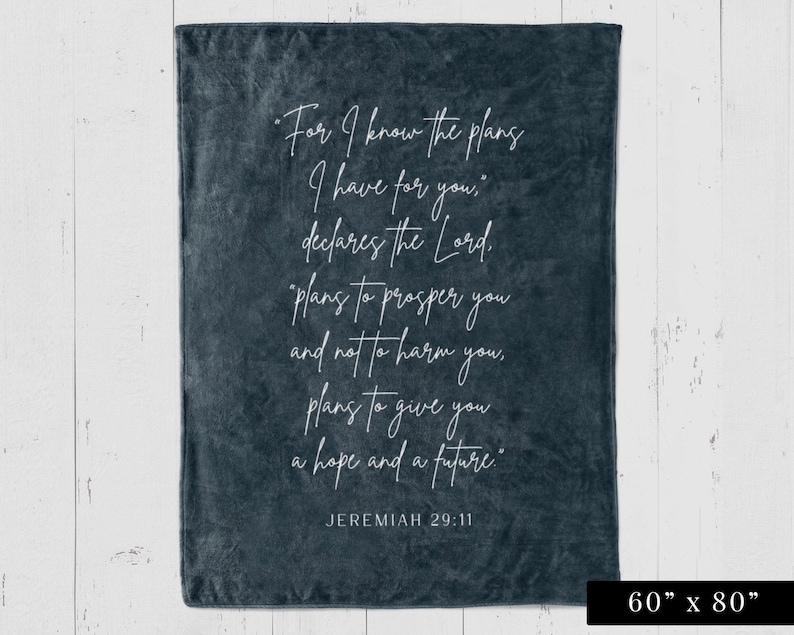 “For I know the plans
I have for you,”
declares the Lord,
“plans to prosper you
and not to harm you,
plans to give you
a hope and a future.”
JEREMIAH 29:11
60” x 80”